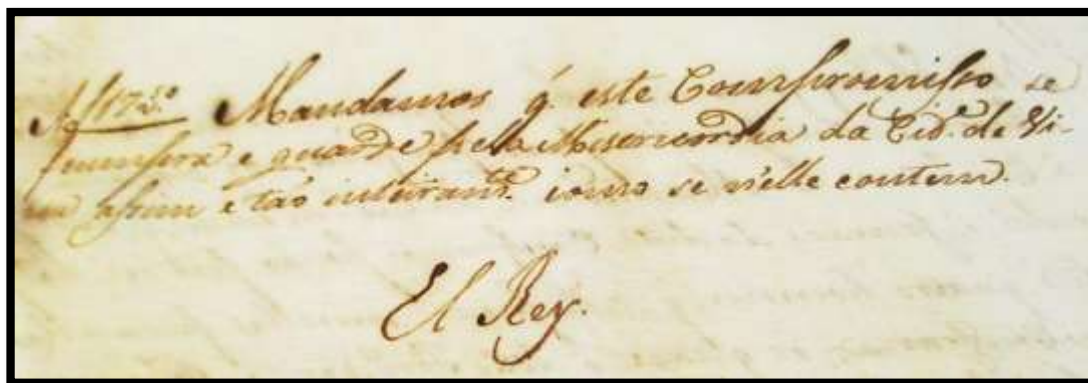 Mandamos q. este Compromisso se
cumpra e guarde pella Misericordia da Cid.e de Vi-
assim e tão inteiram.te como se n'elle contem.
El Rey.